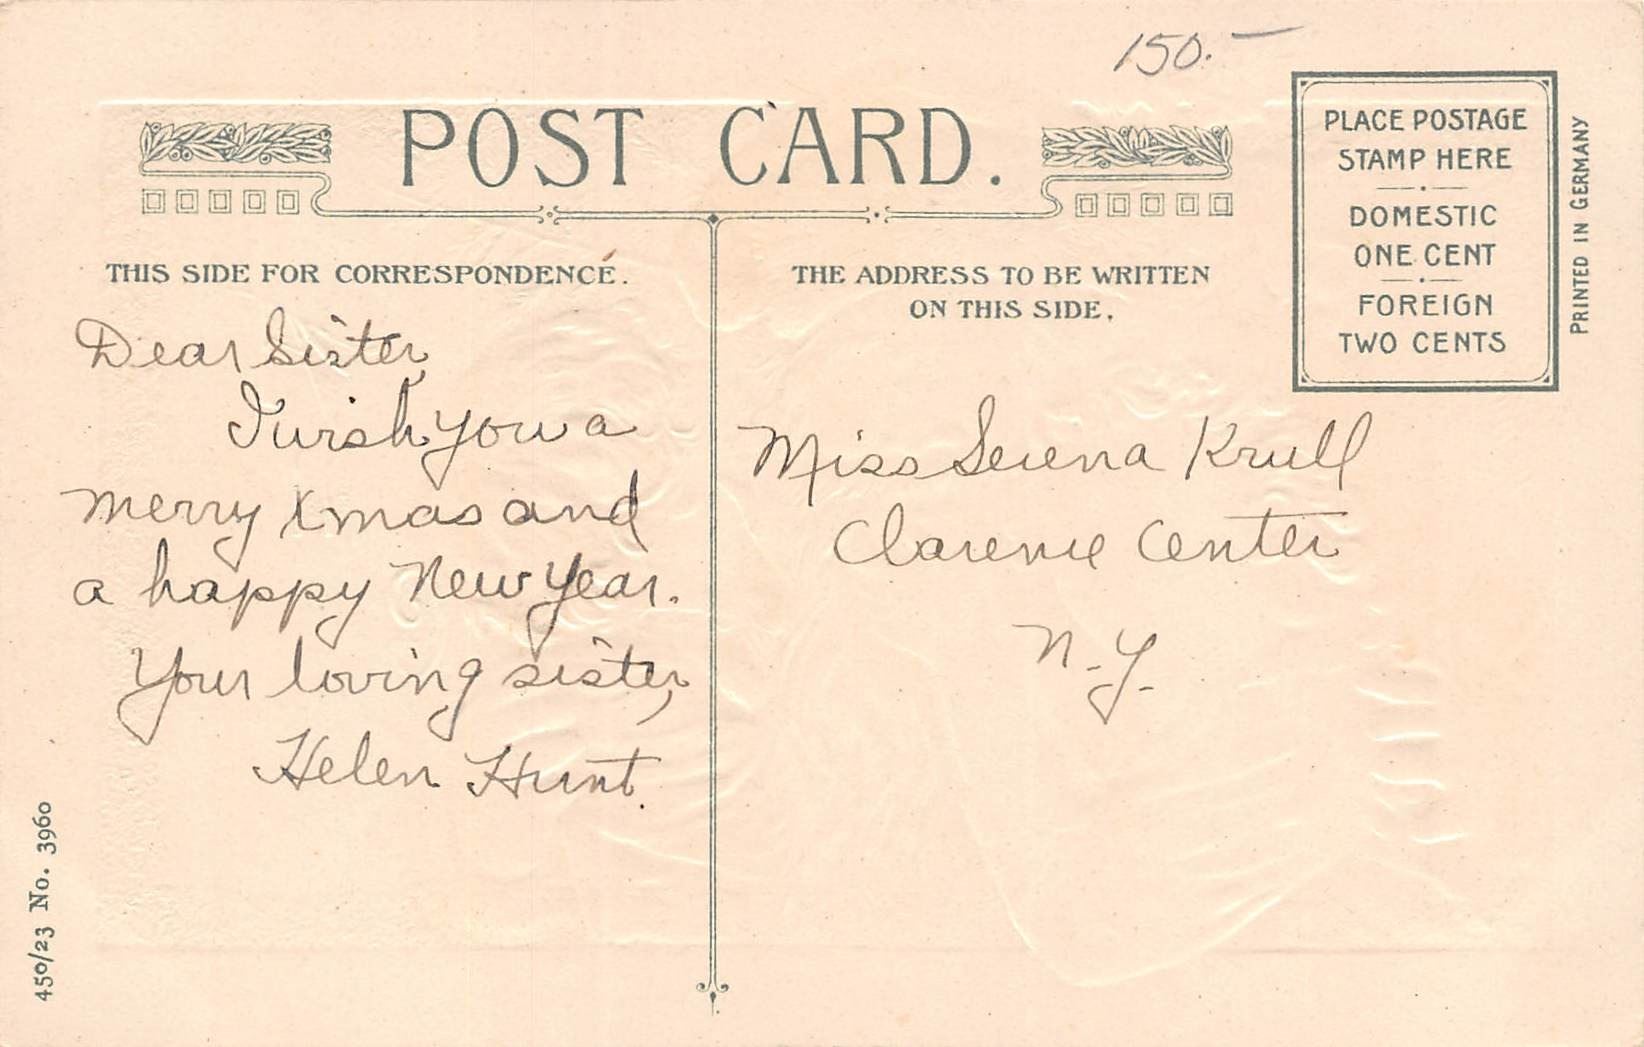 150.–
POST CARD.
PLACE POSTAGE
STAMP HERE
DOMESTIC
ONE CENT
FOREIGN
TWO CENTS
PRINTED IN GERMANY
THIS SIDE FOR CORRESPONDENCE.
Dear Sister,
I wish you a
merry Xmas and
a happy New Year.
Your loving sister,
Helen Hunt.
THE ADDRESS TO BE WRITTEN
ON THIS SIDE.
Miss Serena Krull
Clarence Center
N.Y.
450/23 No. 3960